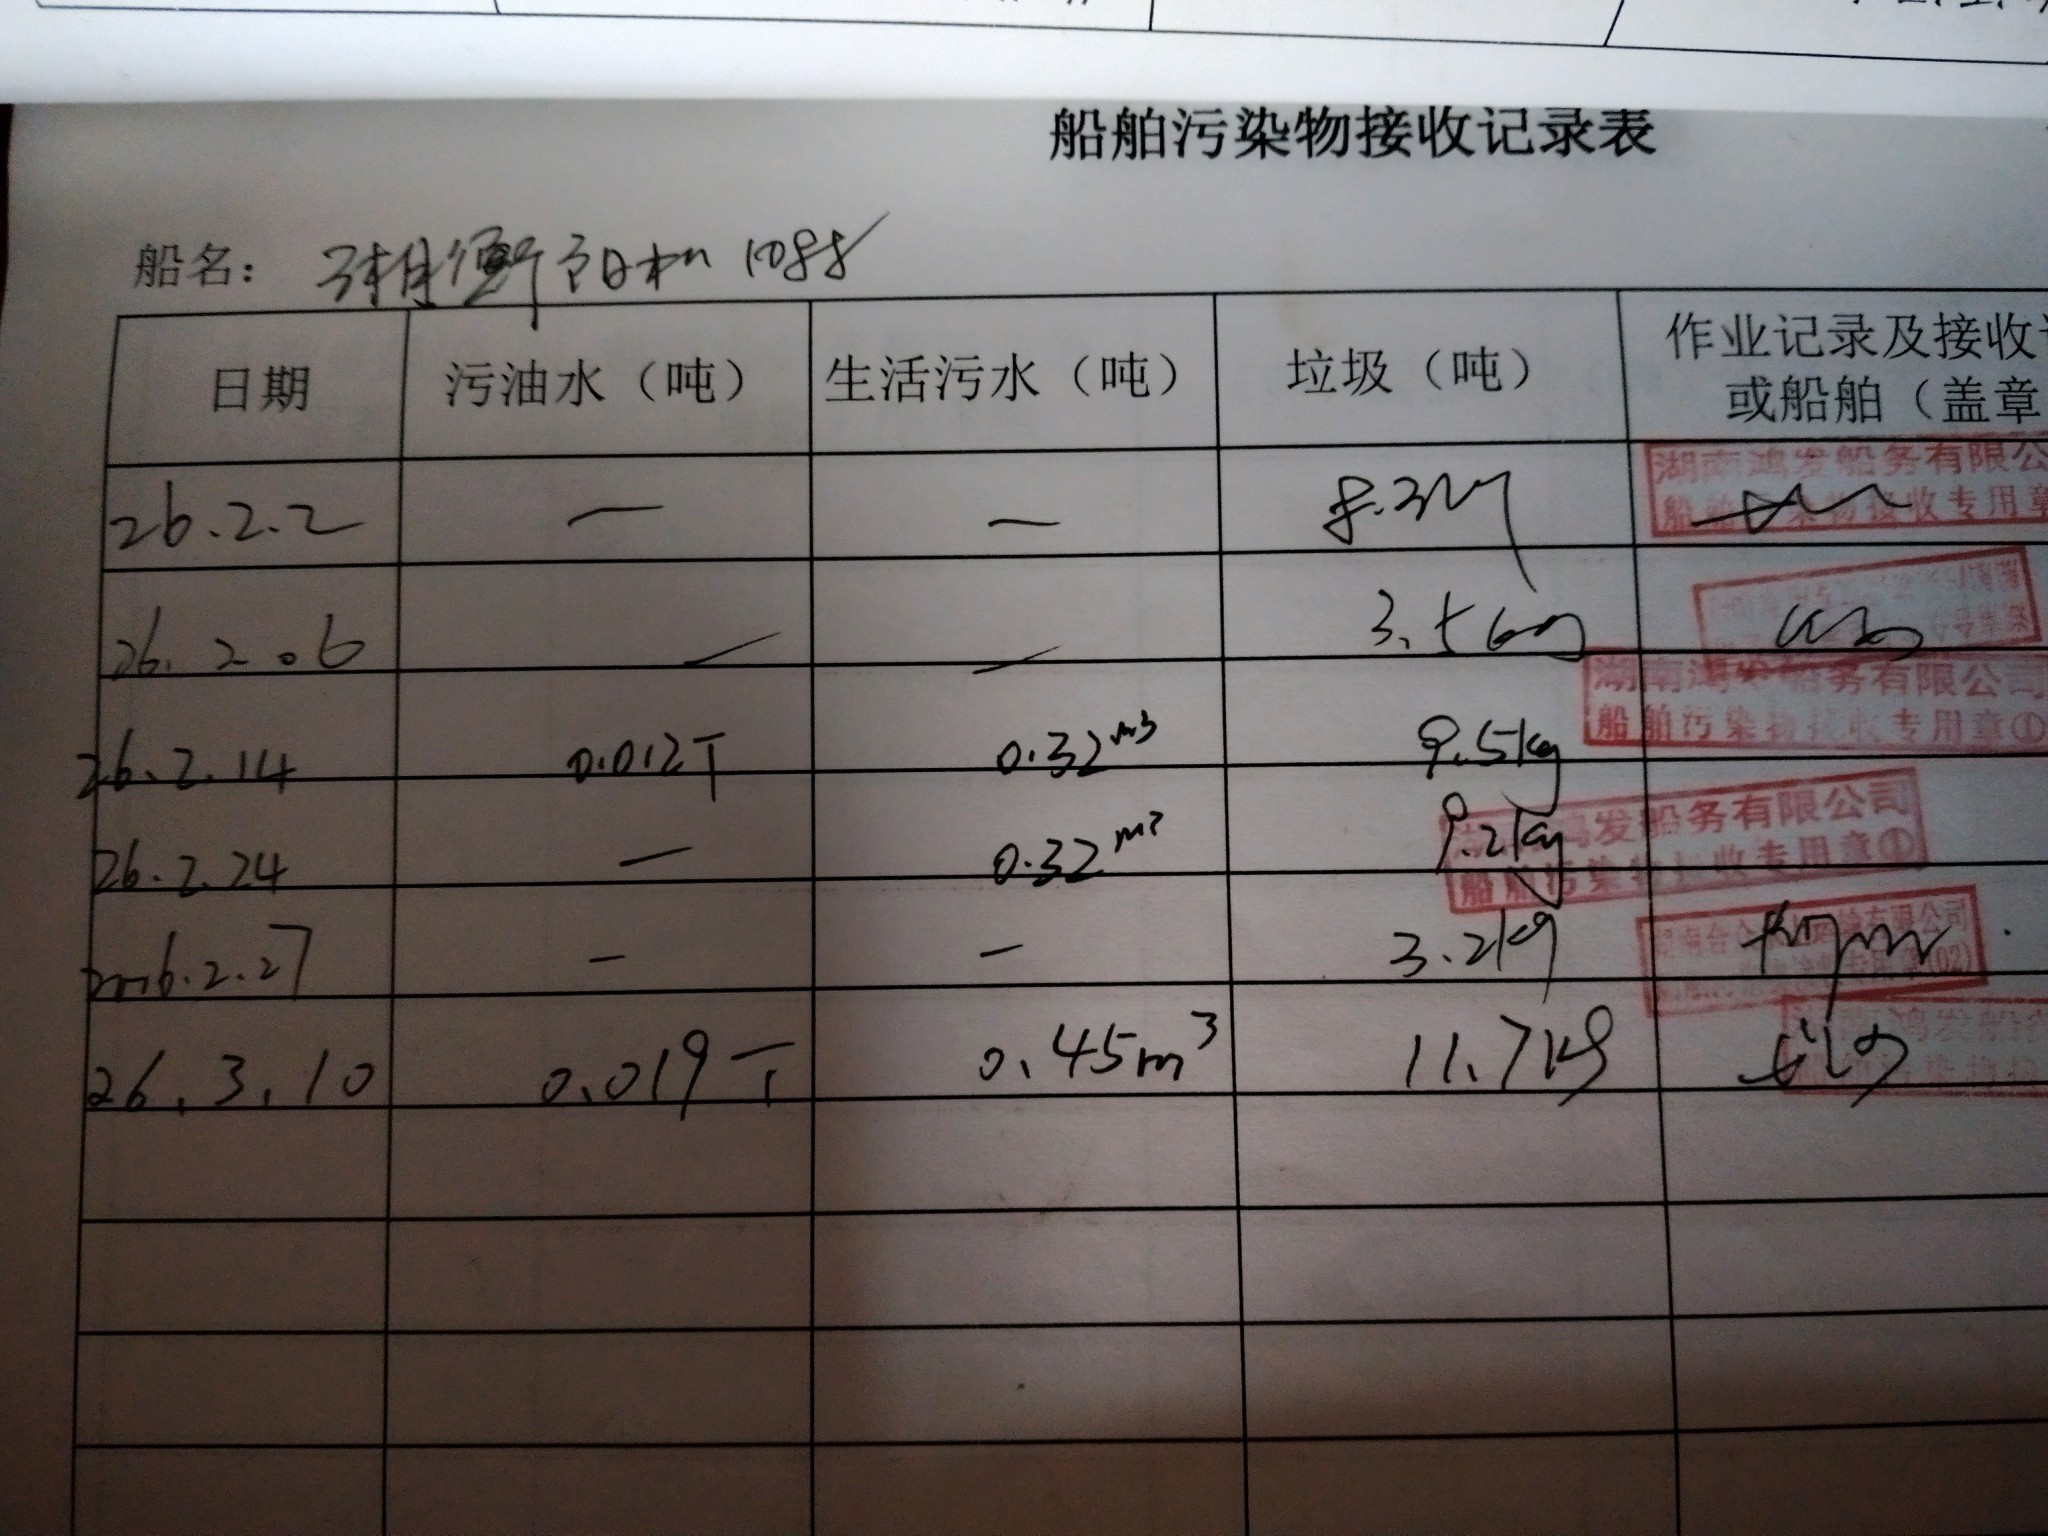 船舶污染物接收记录表
船名：湘衡阳机1088
日期 污油水（吨） 生活污水（吨） 垃圾（吨） 作业记录及接收
或船舶（盖章
26.2.2 — — 8.3
湖南鸿发船务有限公
船舶污染物接收专用章
26.2.06 — — 3.5kg
湖南鸿发船务有限公司
船舶污染物接收专用章①
26.2.14 0.012T 0.32m³ 9.5kg
26.2.24 — 0.32m³ 9.2kg
鸿发船务有限公司
船舶污染物接收专用章①
2026.2.27 — — 3.2kg
有限公司
(02)
26.3.10 0.019T 0.45m³ 11.7kg
南鸿发船